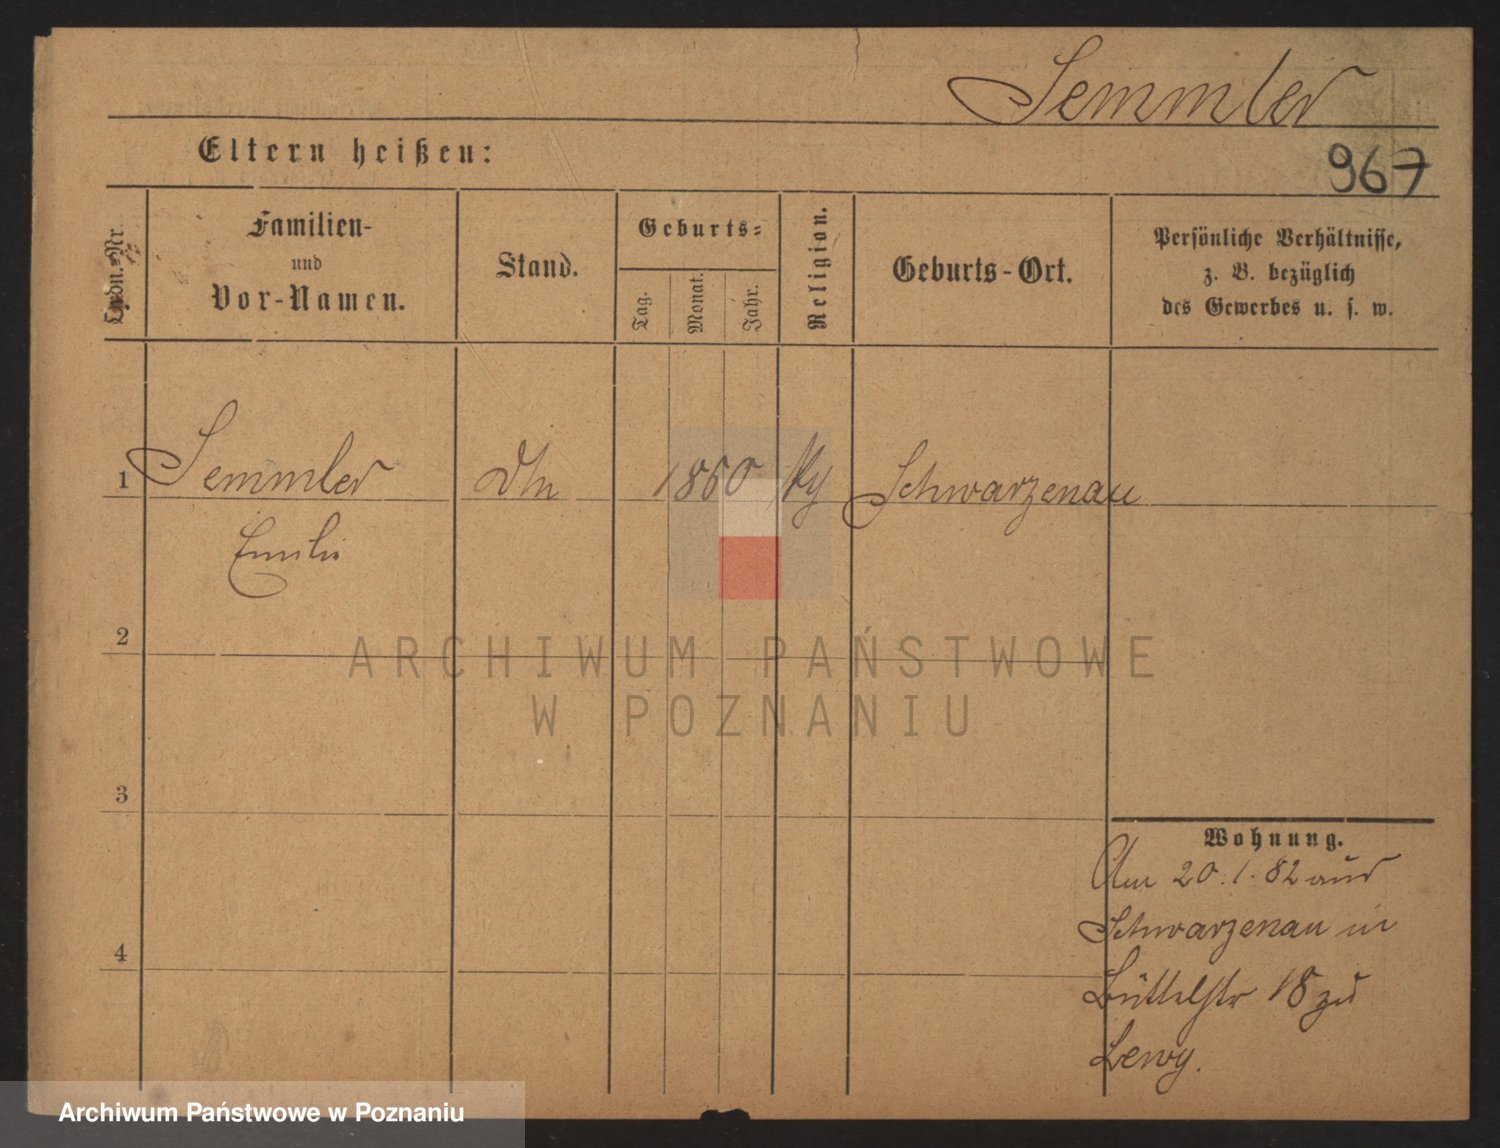 Semmler
Eltern heißen:
967
Ordn.-Nr.
Familien-
und
Vor-Namen.
Stand.
Geburts-
Tag.
Monat.
Jahr.
Religion.
Geburts-Ort.
Persönliche Verhältnisse,
z. B. bezüglich
des Gewerbes u. s. w.
1 Semmler 1860 Schwarzenau
Emilie
2
ARCHIWUM PAŃSTWOWE
W POZNANIU
3
Wohnung.
Am 20.1.82 aus
Schwarzenau in
4
Büttelstr 18 zu
Lewy.
Archiwum Państwowe w Poznaniu